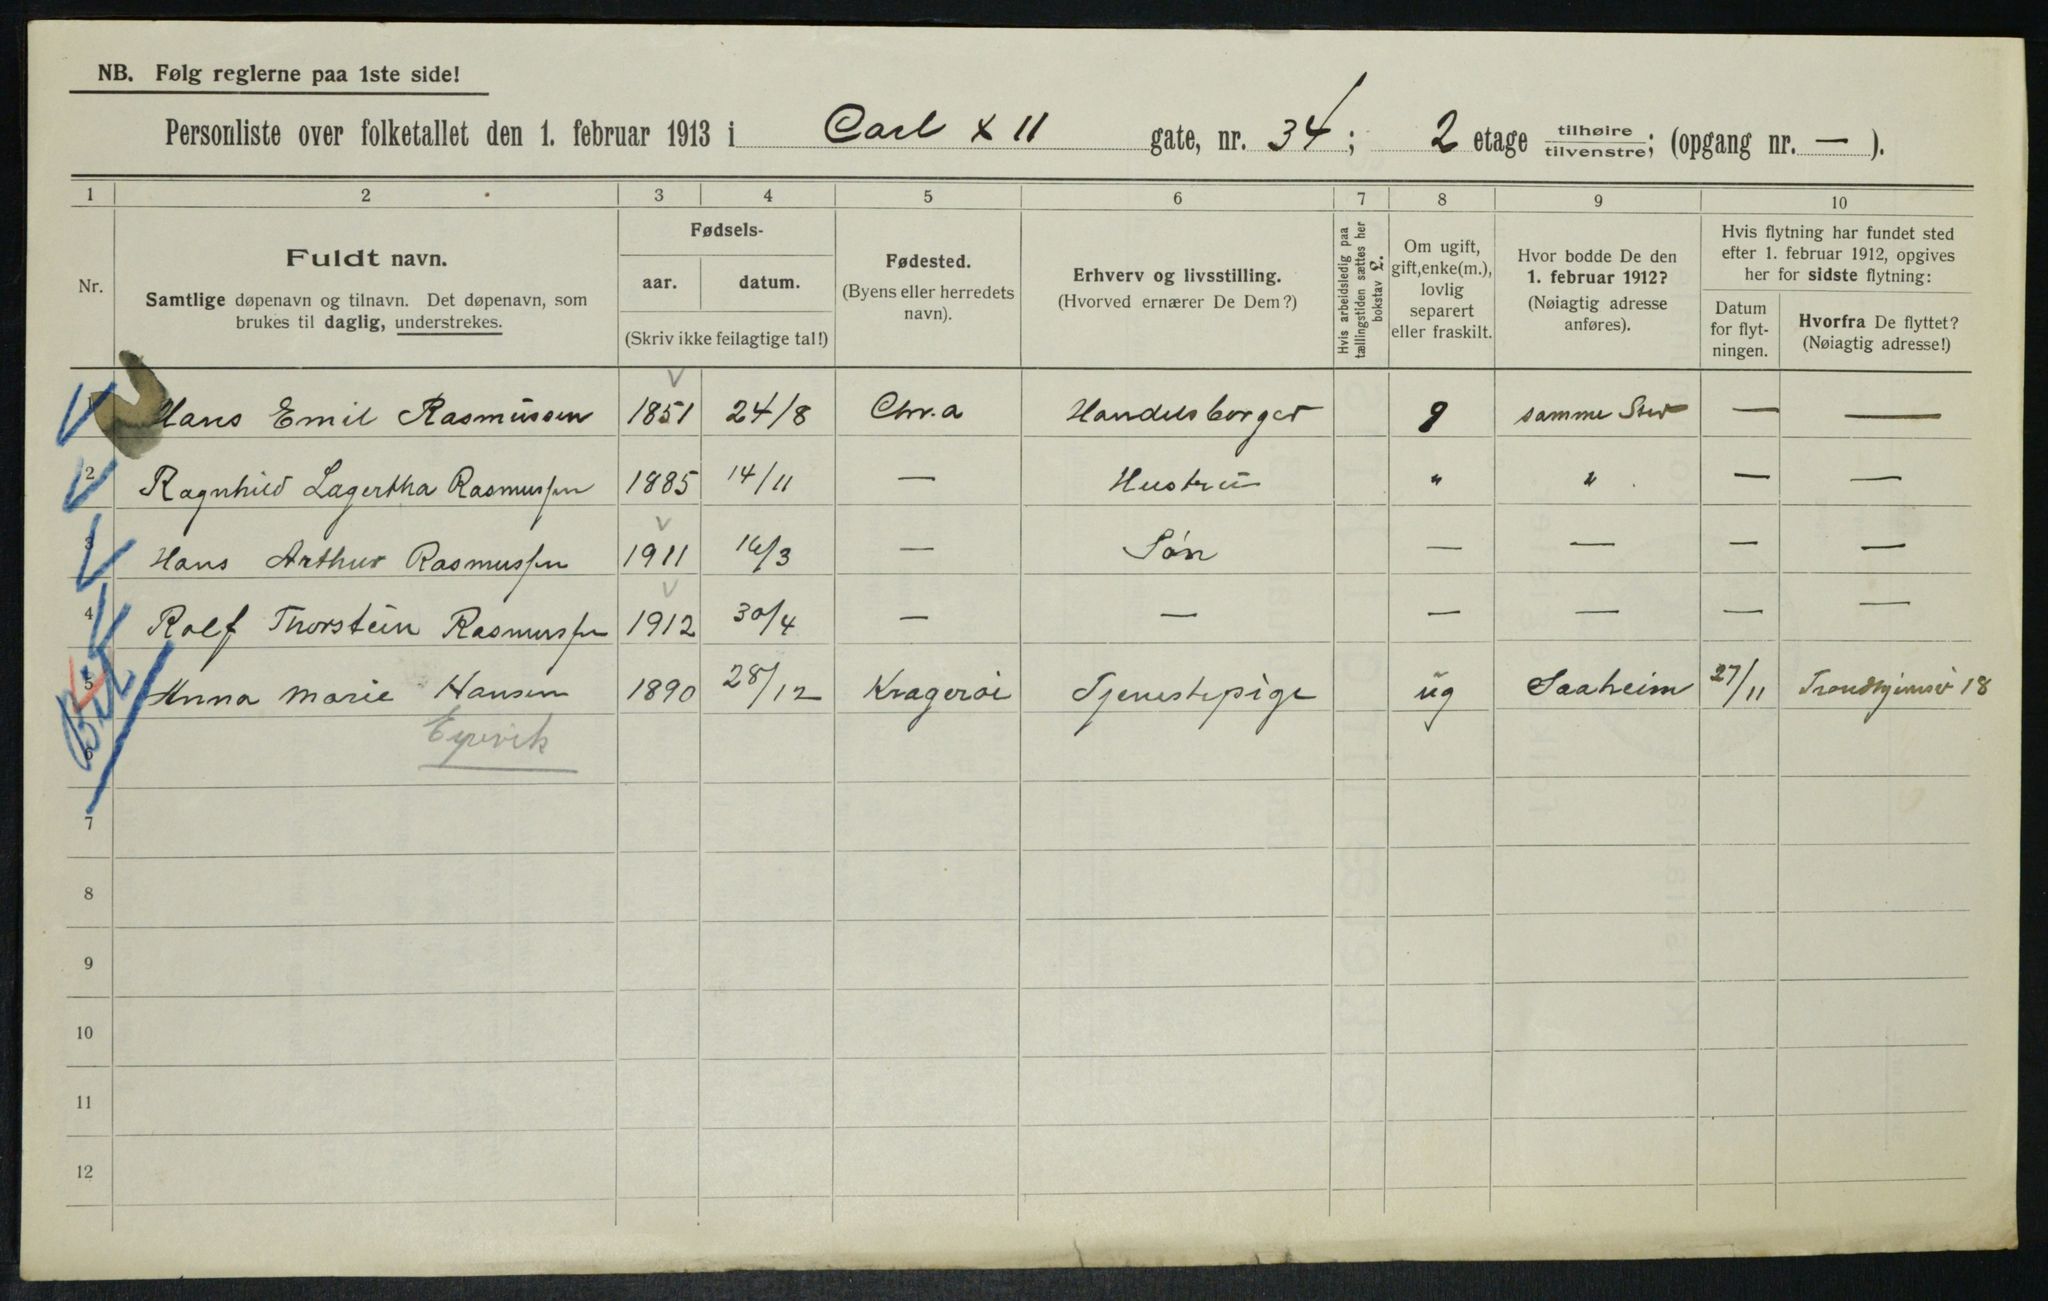 NB. Følg reglerne paa 1ste side!
Personliste over folketallet den 1. februar 1913 i Carl X II gate, nr. 34; 2 etage tilhøire / tilvenstre; (opgang nr. — ).
1 2 3 4 5 6 7 8 9 10
Nr.
Fuldt navn.
Samtlige døpenavn og tilnavn. Det døpenavn, som
brukes til daglig, understrekes.
Fødsels-
aar. datum.
(Skriv ikke feilagtige tal!)
Fødested.
(Byens eller herredets
navn).
Erhverv og livsstilling.
(Hvorved ernærer De Dem?)
Hvis arbeidsledig paa
tællingstiden sættes her
bokstav L.
Om ugift,
gift, enke(m.),
lovlig
separert
eller fraskilt.
Hvor bodde De den
1. februar 1912?
(Nøiagtig adresse
anføres).
Hvis flytning har fundet sted
efter 1. februar 1912, opgives
her for sidste flytning:
Datum
for flyt-
ningen.
Hvorfra De flyttet?
(Nøiagtig adresse!)
1 Hans Emil Rasmussen 1851 24/8 Chr.a Handelsborger g samme Sted — —
2 Ragnhild Lagertha Rasmussen 1885 14/11 — Hustru " " — —
3 Hans Arthur Rasmussen 1911 16/3 — Søn — — — —
4 Rolf Thorstein Rasmussen 1912 30/4 — — — — — —
5 Anna Marie Hansen 1890 28/12 Kragerøi Tjenestepige ug Saaheim 27/11 18
6
7
8
9
10
11
12